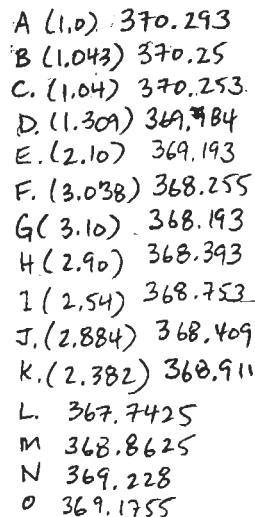 A (1.0) 370.293
B (1.043) 370.25
C. (1.04) 370.253
D. (1.309) 369.984
E. (2.10) 369.193
F. (3.038) 368.255
G( 3.10) 368.193
H( 2.90) 368.393
I ( 2,54) 368.753
J. (2.884) 368.409
K. (2.382) 368.911
L. 367.7425
M 368.8625
N 369.228
O 369.1755